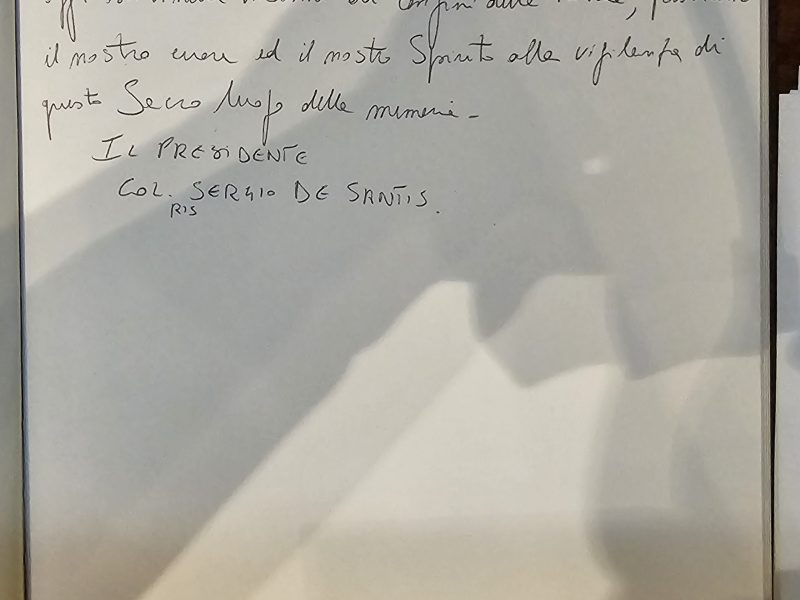 il nostro cuore ed il nostro Spirito alla vigilanza di
questo Sacro luogo delle memorie -
IL PRESIDENTE
COL. SERGIO DE SANTIS.
RIS